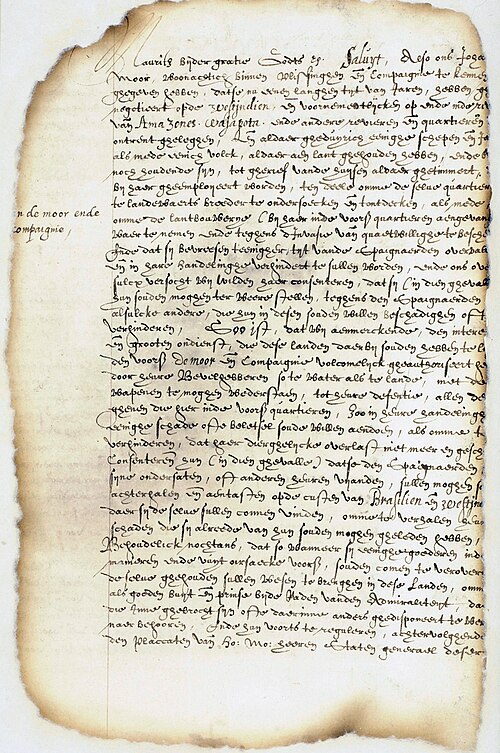 Maurits bijder gratie Godts &c. Saluyt, Also ons Joha
Moor, woonachtich binnen Vlissinghen en Compaignie te kenne
ghegeven hebben, datse nu eenen langhen tyt van Jaren, hebben ge
negotieert opde Westindien, en voornementlycken op ende inde re
van Amazones, Wajapota, ende andere revieren en quartieren
ontrent gheleghen, en aldaer ghedurich eenighe schepen en
als mede eenich volck, aldaer aen lant ghehouden hebben, ende
noch houdende syn, tot gherief vande huysen aldaer ghetimmert,
by haer gheemployeert worden, ten deele omme de selve quartier
te landewaerts breeder te ondersoecken en tontdecken, als mede
omme de lantbouwerye by haer inde voors quartieren aengevan
waer te nemen ende teghens d'invasie van quaetwillighe te besche
Ende dat sy bevreesen teenigher tyt vande Spaignaerden overva
en in hare handelinghe verhindert te sullen worden, ende ons ov
sulcx versocht wy wilden haer consenteren, dat sy in dien gheval
hun souden moghen ter weere stellen, teghens den Spaignaerden
alsulcke andere, die hun in desen souden willen beschadighen of
verhinderen, Soo ist, dat wy aenmerckende, den intere
en grooten dienst, die dese landen daer by souden hebben te
den voors de Moor en Compaignie volcomelyck gheauthoriseert he
door heure Bevelhebberen so te water als te lande, met de
wapenen te moghen wederstaen, tot heure defentie, allen de
ghenen die hier inde voors quartieren, Soo in heure handelingh
eenighe schade ofte beletsel soude willen aendoen, als omme t
verhinderen, dat haer dierghelycke overlast niet meer en gesch
Consenteren hun (in dien ghevalle) datse den Spaignaerden
syne ondersaten, oft anderen heuren vianden, sullen moghen
achterhalen en aentasten opde custen van Brasilien en Westin
daer sy de selve sullen comen vinden, omme te verhalen
schaden die sy alreede van hun souden moghen gheleden hebben,
Behoudelick nochtans, dat so wanneer sy eenighe goederen ind
manieren ende uuyt oorsaecke voors, souden comen te verover
de selve ghehouden sullen wesen te brenghen in dese Landen, omm
als goeden buyt en prinse byde Raden vander Admiraliteyt, da
die Inne ghebrocht syn ofte daerinne anders ghedisponeert te wer
naer behooren, Ende hun voorts te reguleren, achtervolghende
den Placcaten van Ho: Mo: heeren Staten generael deser
n de moor ende
ompaignie,